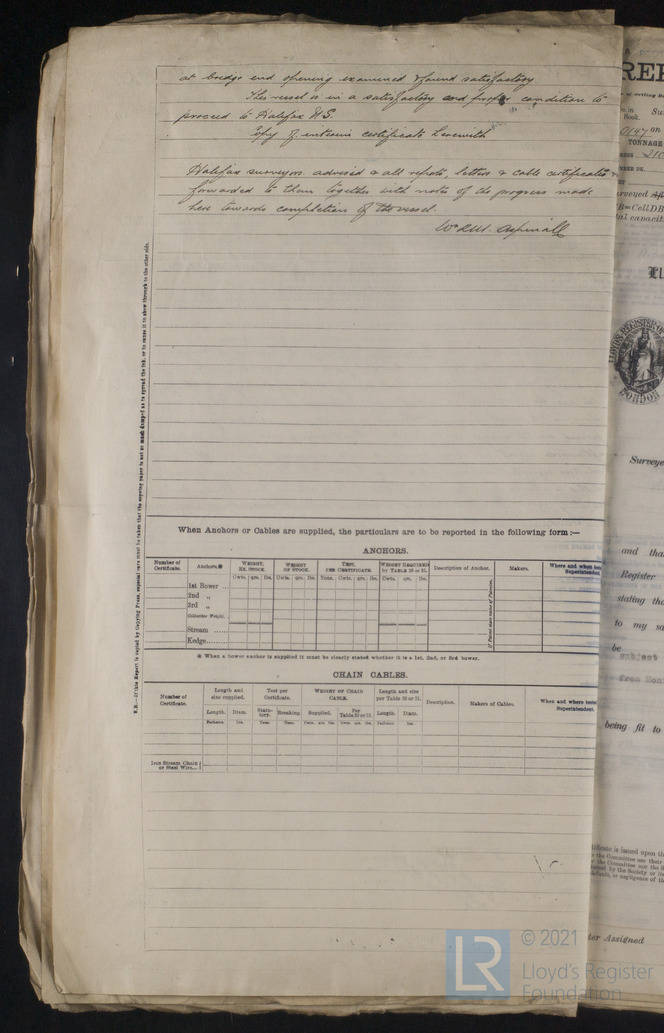 at bridge end opening examined & found satisfactory
This vessel is in a satisfactory and proper condition to
proceed to Halifax N.S.
Copy of interim certificate herewith
Halifax surveyors advised & all reports, letters & cable certificates
forwarded to them together with notes of the progress made
here towards completion of the vessel.
Aspinall
N.B.—If this Report is copied by Copying Press, especial care must be taken that the copying paper is not so much damped as to spread the ink, or to cause it to show through to the other side.
When Anchors or Cables are supplied, the particulars are to be reported in the following form :—
ANCHORS.
Number of Certificate. Anchors.* WEIGHT, EX. STOCK. WEIGHT OF STOCK. TEST, PER CERTIFICATE. WEIGHT REQUIRED by TABLE Description of Anchor. Makers. Where and when Superintendent.
Cwts. qrs. lbs. Cwts. qrs. lbs. Tons. Cwts. qrs. lbs. Cwts. qrs. lbs.
1st Bower ..
2nd „
3rd „
Collective Weight.
Stream ......
Kedge......
* When a bower anchor is supplied it must be clearly stated whether it is a 1st, 2nd, or 3rd bower.
CHAIN CABLES.
Number of Certificate. Length and size supplied. Test per Certificate. WEIGHT OF CHAIN CABLE. Length and size per Table Description. Makers of Cables. When and where Superintendent.
Length. Diam. Statutory. Breaking. Supplied. Per Table Length. Diam.
Fathoms. Ins. Tons. Tons. Cwts. qrs. lbs. Cwts. qrs. lbs. Fathoms. Ins.
Iron Stream Chain
or Steel Wire....
TONNAGE
LLOYD'S REGISTER OF
LONDON
and tha
Register
stating tha
to my sa
be
subject
being fit to
tificate is issued upon th
the Committee nor the
or negligence of
Assigned
LR
© 2021
Lloyd's Register
Foundation